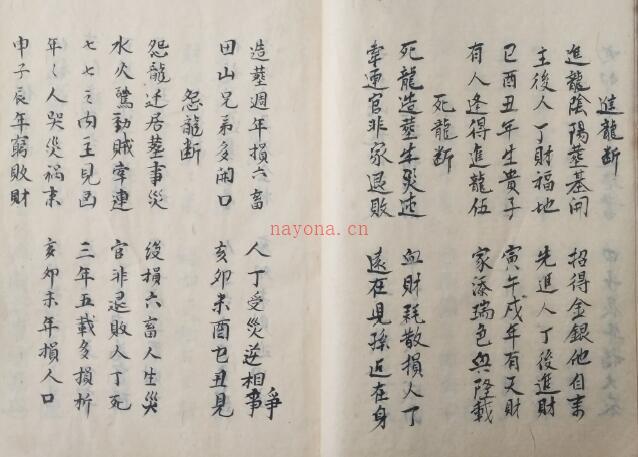 進龍断
進龍陰陽塟基開 招得金銀他自来
主後人丁財福地 先進人丁後進財
巳酉丑年生貴子 寅午戌年有天財
有人逢得進龍伍 家添瑞色興隆載
死龍断
死龍造塟生災速 血財耗散損人丁
牽連官非家退敗 遠在児孫近在身
造塟週年損六畜 人丁受災逆相爭
田山兄弟多鬧口 亥卯未酉巳丑見
怨龍断
怨龍迁居塟事災 後損六畜人生災
水火驚動賊牵連 官非退敗人丁死
七七之内主見凶 三年五載多損折
年〻人哭災禍来 亥卯未年損人口
申子辰年窮敗財
nayona.cn